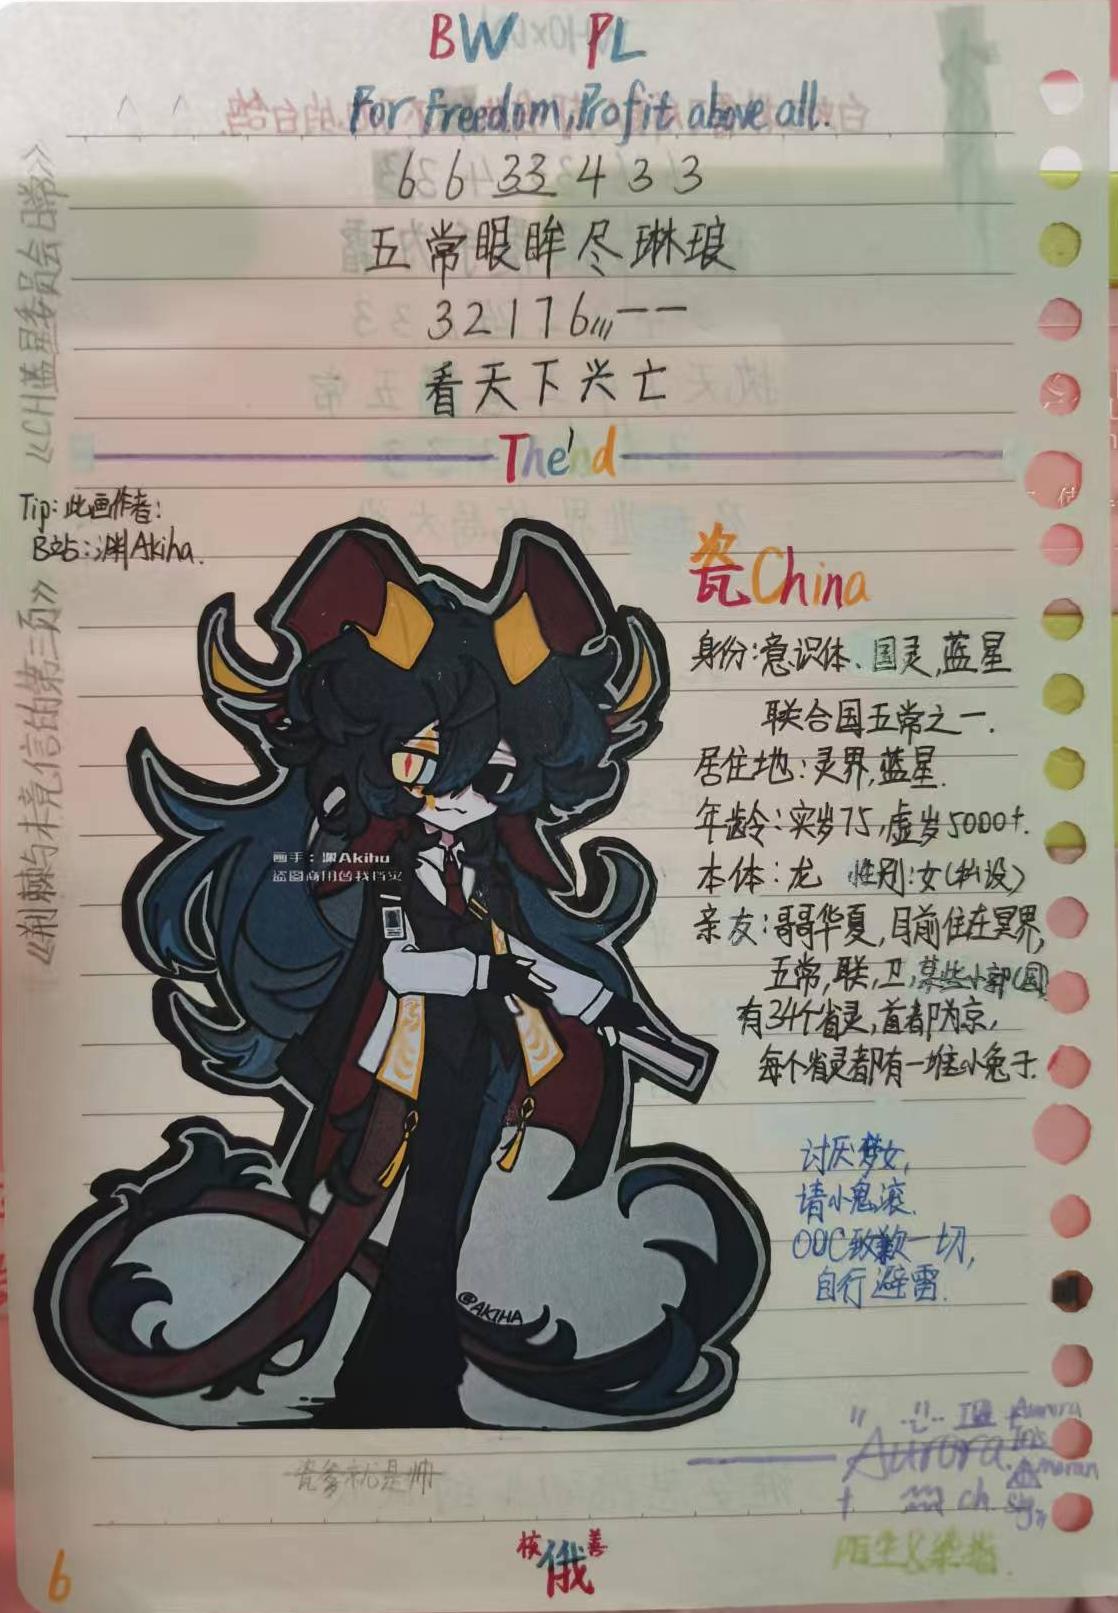 BW PL
For freedom, Profit above all.
6 6 33 4 3 3
五常眼眸尽琳琅
3 2 1 7 6,,, — —
看天下兴亡
The'nd
《CH蓝星委员会日常》
《荆棘与未竟信的第三页》
Tip:此画作者:
B站:渊Akiha.
瓷China
身份:意识体、国灵,蓝星
联合国五常之一.
居住地:灵界,蓝星.
年龄:实岁75,虚岁5000+.
本体:龙 性别:女(私设)
亲友:哥哥华夏,目前住在冥界,
五常,联,卫,某些小部(国)
有34个省灵,首都为京,
每个省灵都有一堆小兔子.
画手:渊Akihu
盗图商用替我挡灾
@AKIHA
讨厌梦女,
请小鬼滚.
OOC致歉一切,
自行避雷.
瓷爹就是帅
Aurora
Aurora.
ch.
核善
俄
6